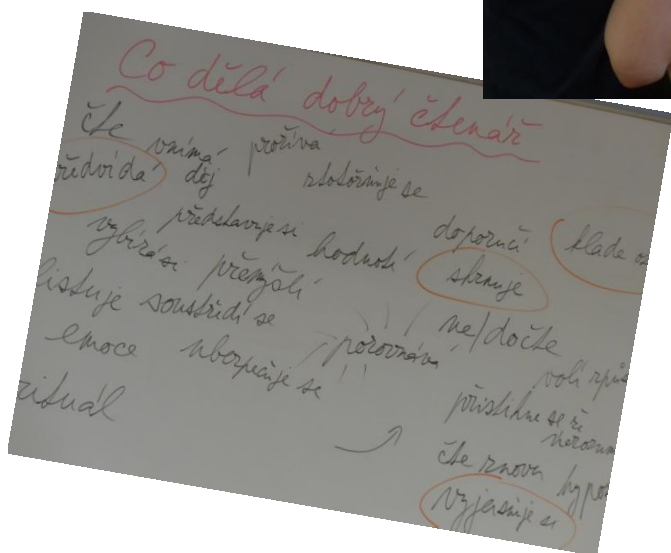 Co dělá dobrý čtenář
čte vnímá děj prožívá
ředvídá ztotožňuje se
představuje si hodnotí doporučí klade
vybírá si přemýšlí shrnuje
listuje soustředí se ne/dočte
emoce ubezpečuje se porovnává volí způs
rituál přistihne se že nerozum
čte znovu hypo
vyjasňuje si